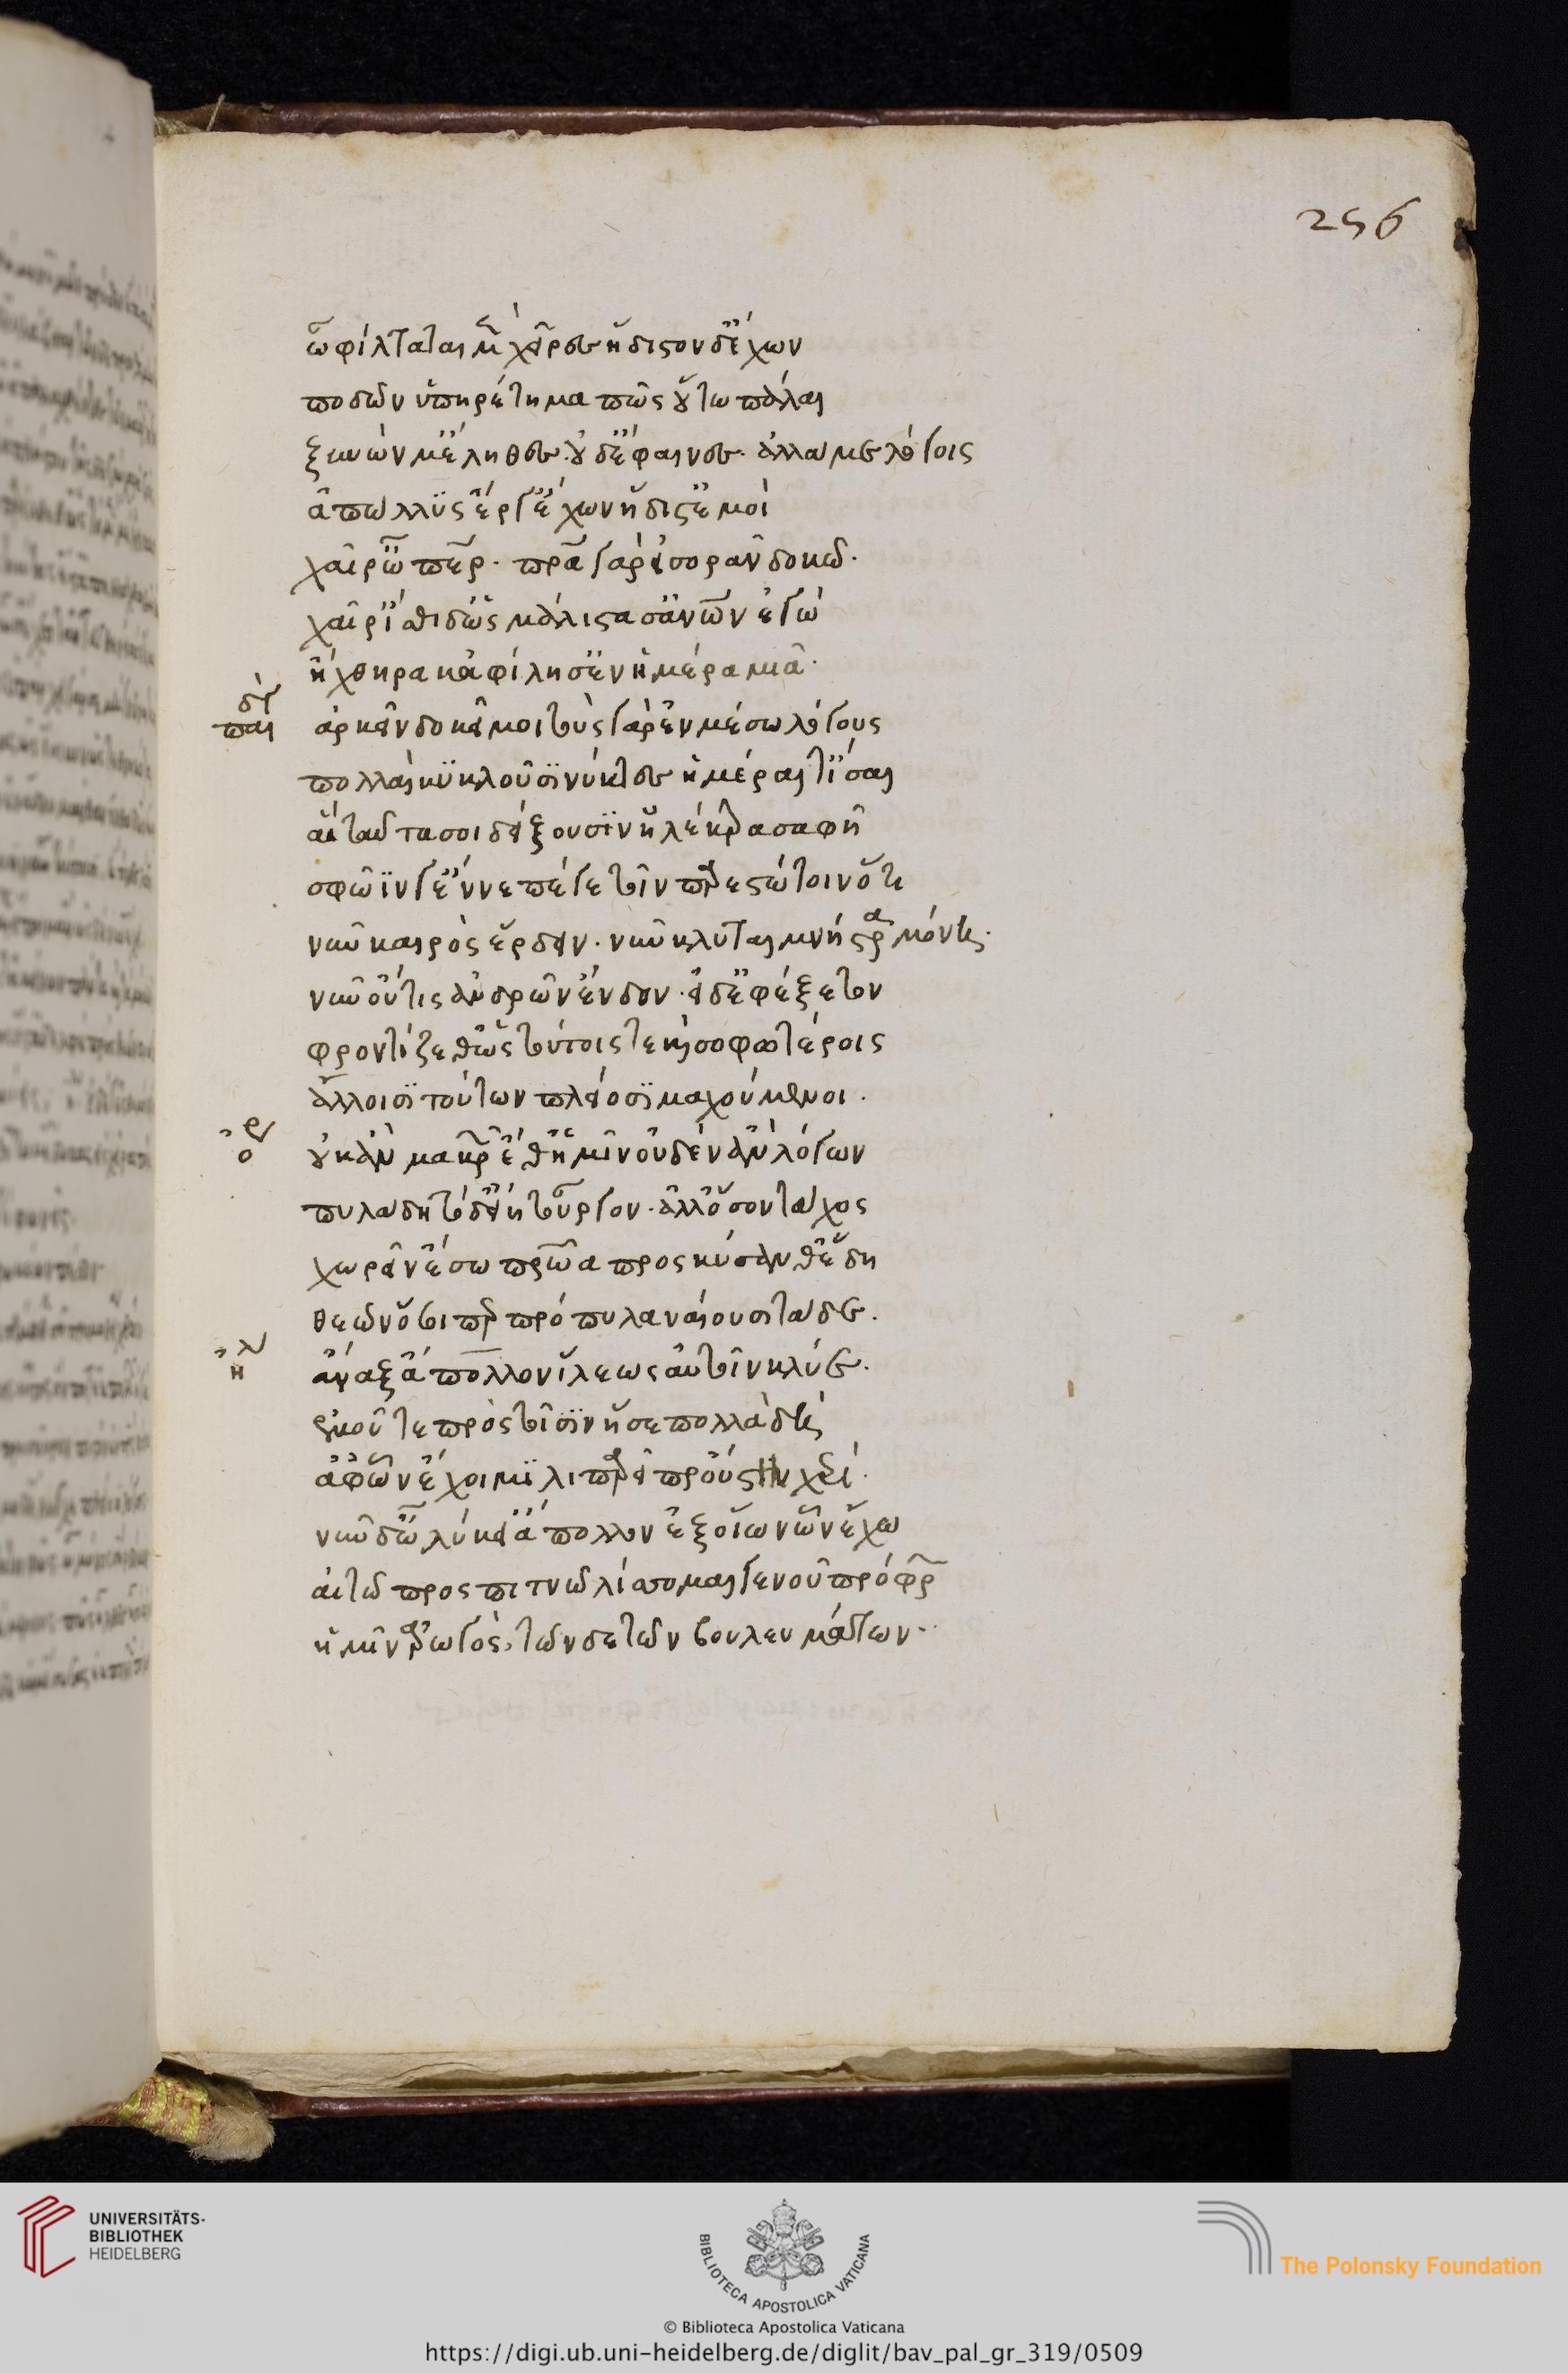 256
ὦ φίλταται μ̃ χεῖρες ἥδιστον δ' ἔχων
ποδῶν ὑπηρέτημα πῶς οὕτω πάλαι
ξυνὼν μ' ἔληθες· οὐδ' ἔφαινες· ἀλλά με λόγοις
ἀπώλλυς ἔργ' ἔχων ἥδιστ' ἐμοί
χαῖρ' ὦ περ· πρα γὰρ εἰσορᾶν δοκῶ·
χαῖρ' ἴσθι δ' ὡς μάλιστά σ' ἀνων ἐγὼ
ἤχθηρα κἀφίλησ' ἐν ἡμέρα μιᾶ·
παι δγ ἀρκεῖν δοκεῖ μοι τοὺς γὰρ ἐν μέσω λόγους
πολλαὶ κυκλοῦσι νύκτες ἡμέραι τ' ἴσαι
αἳ ταῦτα σοι δείξουσιν ἠλέκρα σαφῆ
σφῶϊν γ' ἐννέπω γε τοῖν πρεστώτοιν ὅτι
νῦν καιρὸς ἔρδειν· νῦν κλυταιμνήστρα μόνη·
νῦν οὔτις ἀνδρῶν ἔνδον· εἰ δ' ἐφέξετον
φροντίζεθ' ὡς τούτοις τε καὶ σοφωτέροις
ἄλλοισι τούτων πλείοσι μαχούμενοι·
ὀρ οὐκ ἂν μακρ ἔθ' ἡμῖν οὐδὲν ἂν λόγων
πυλάδη τόδ' εἴη τοὖργον· ἀλλ' ὅσον τάχος
χωρεῖν ἔσω πρῶα προσκύσανθ' ἕδη
θεῶν ὅσοι πρ πρόπυλα ναίουσι τάδε·
ἠλ ἄναξ ἄπολλον ἵλεως αὐτοῖν κλύε·
ἐμοῦ τε πρὸς τοῖσιν ἥ σε πολλὰ δὴ
ἀφ' ὧν ἔχοιμι λιπρεῖ προὔστην χερί·
νῦν δ' ὦ λύκει' ἄπολλον ἐξ οἵων ἔχω
αἰτῶ προσπιτνῶ λίσσομαι γενοῦ πρόφρ
ἡμῖν ἀρωγὸς, τῶνδε τῶν βουλευμάτων·
UNIVERSITÄTS-
BIBLIOTHEK
HEIDELBERG
BIBLIOTECA APOSTOLICA VATICANA
The Polonsky Foundation
© Biblioteca Apostolica Vaticana
https://digi.ub.uni-heidelberg.de/diglit/bav_pal_gr_319/0509